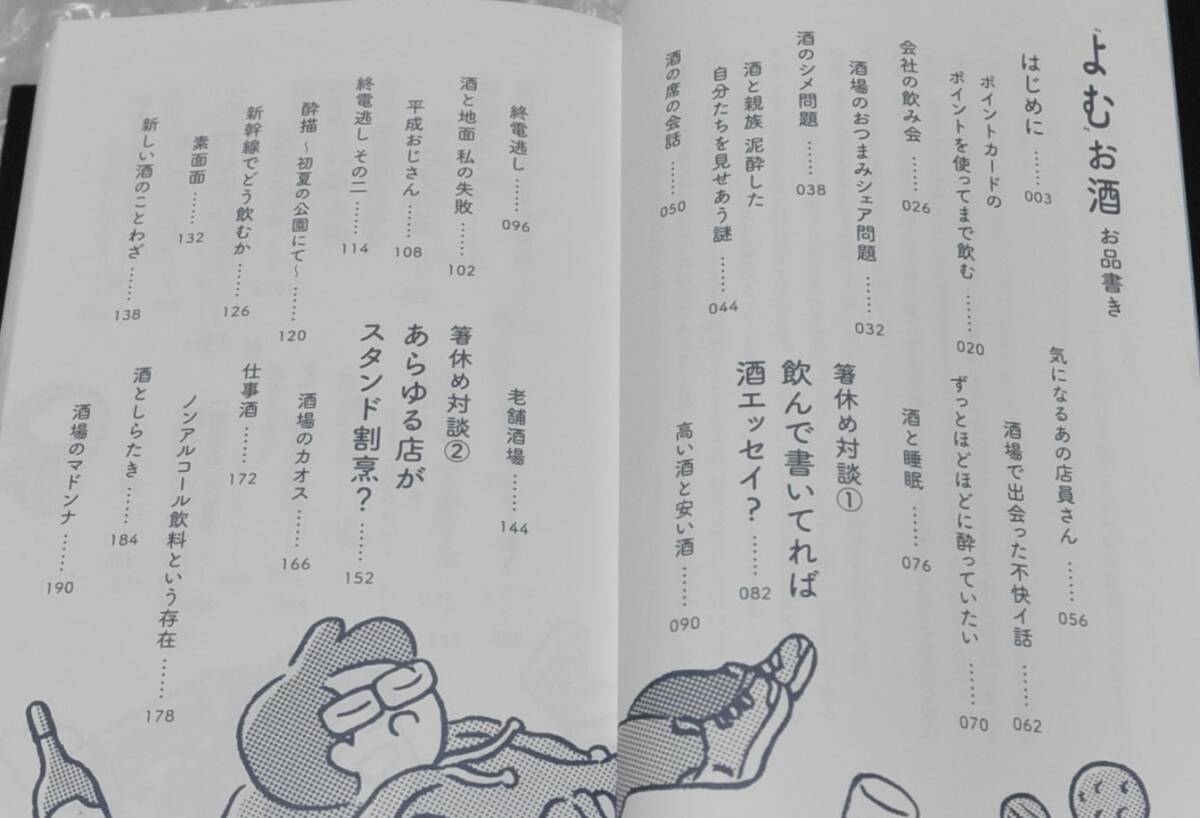 “よむ”お酒 お品書き
はじめに ……003
ポイントカードの
ポイントを使ってまで飲む ……020
会社の飲み会 ……026
酒場のおつまみシェア問題 ……032
酒のシメ問題 ……038
酒と親族 泥酔した
自分たちを見せあう謎 ……044
酒の席の会話 ……050
気になるあの店員さん ……056
酒場で出会った不快イ話 ……062
ずっとほどほどに酔っていたい ……070
酒と睡眠 ……076
箸休め対談①
飲んで書いてれば
酒エッセイ? ……082
高い酒と安い酒 ……090
終電逃し ……096
酒と地面 私の失敗 ……102
平成おじさん ……108
終電逃し その二 ……114
酔描 〜初夏の公園にて〜 ……120
新幹線でどう飲むか ……126
素面面 ……132
新しい酒のことわざ ……138
老舗酒場 ……144
箸休め対談②
あらゆる店が
スタンド割烹? ……152
酒場のカオス ……166
仕事酒 ……172
ノンアルコール飲料という存在 ……178
酒としらたき ……184
酒場のマドンナ ……190